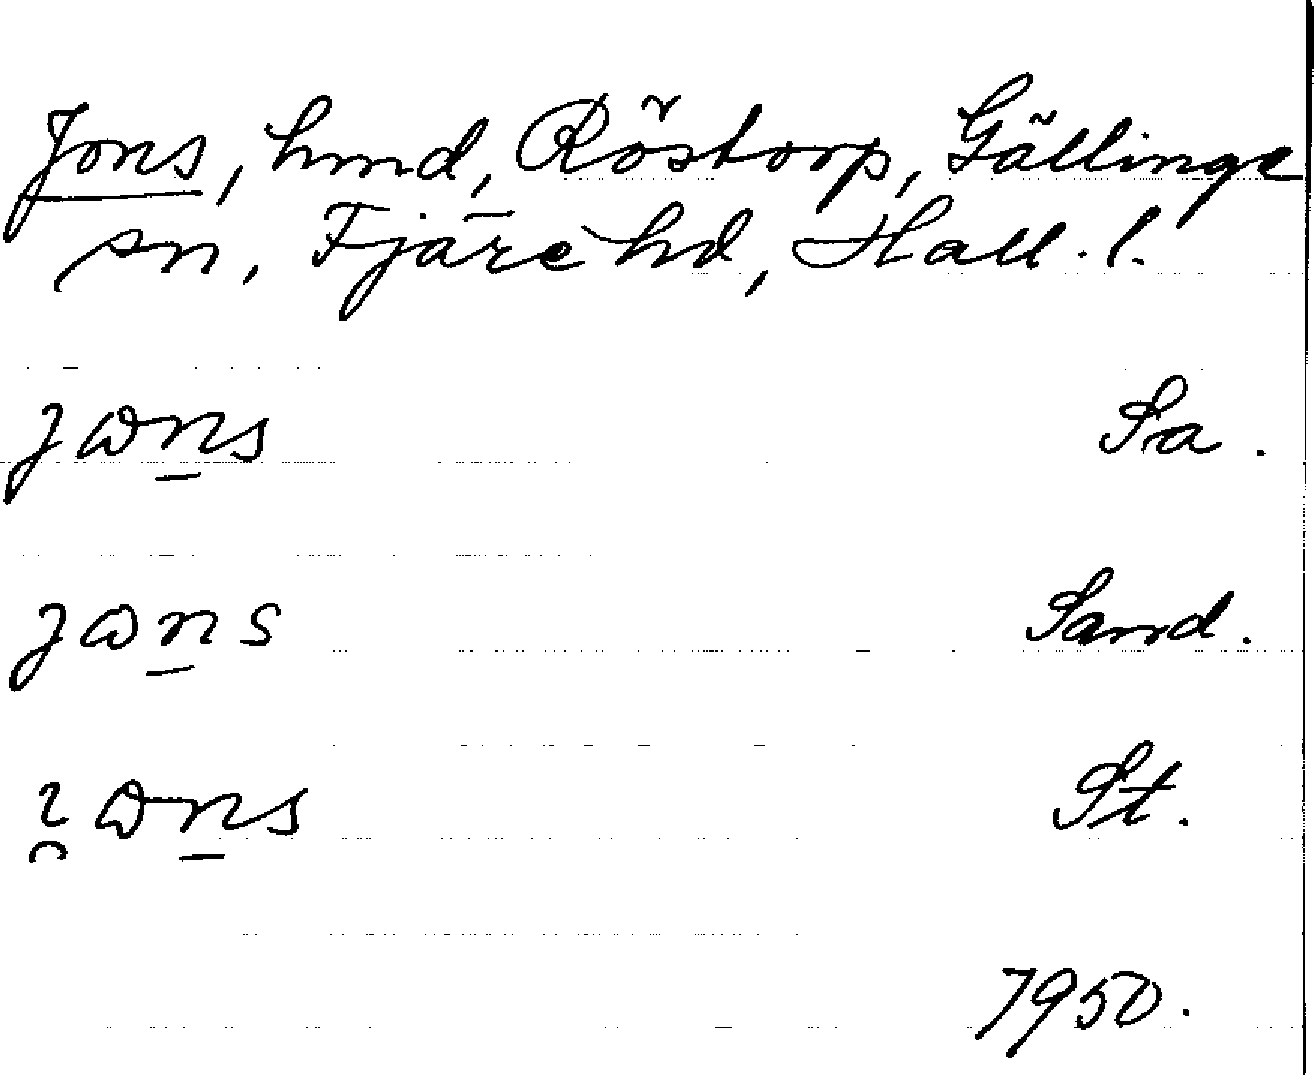 Jons, hmd, Röstorp, Gällinge
sn, Fjäre hd, Hall. l.
jɷn̲s Sa.
jɷn̲s Sand.
ı̯ɷn̲s St.
1950.